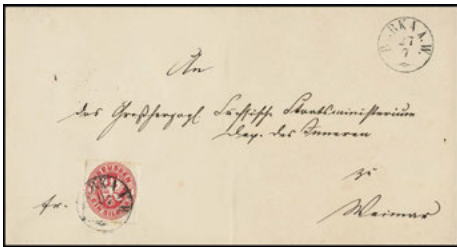 BERKA A.W.
27
7
An
das Großherzogl. Sächsische Staatsministerium
Dep. des Inneren
zu
fr.
Weimar